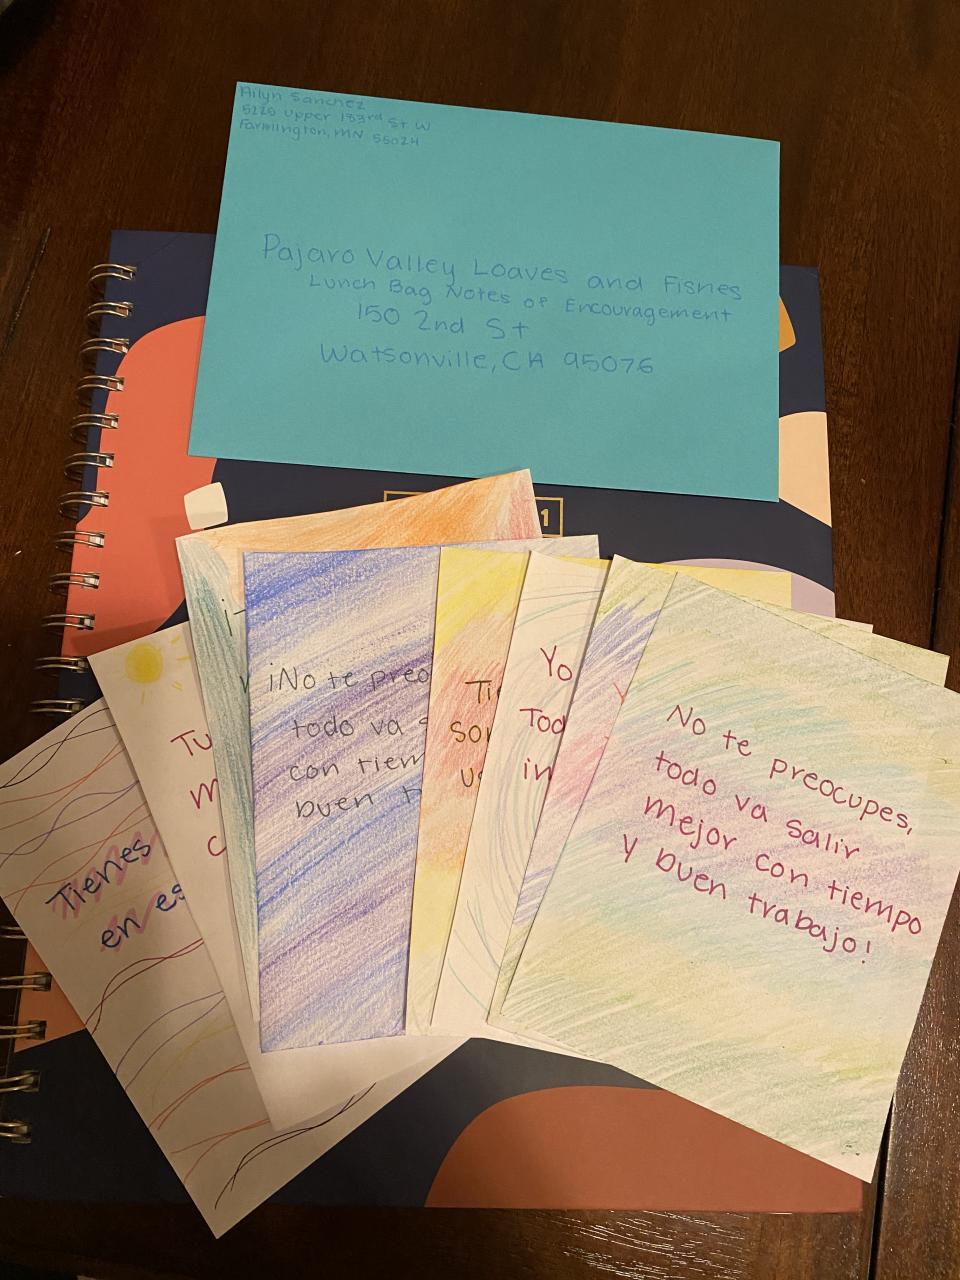 Ailyn Sanchez
5220 upper 183rd St W
Farmington, MN 55024
Pajaro Valley Loaves and Fishes
Lunch Bag Notes of Encouragement
150 2nd St
Watsonville, CA 95076
1
Tienes
en es
Tu
m
c
¡No te preo
todo va s
con tiem
buen t
Ti
son
us
Yo
Tod
in
Y
No te preocupes,
todo va salir
mejor con tiempo
y buen trabajo!